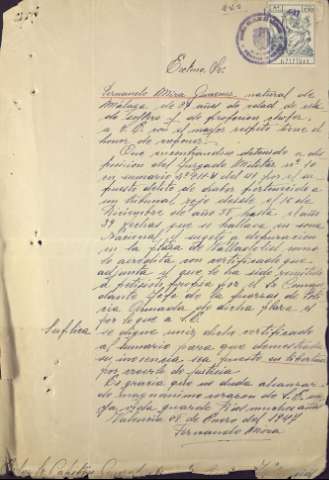 Excmo. Sr.
Fernando Mira Gimenez, natural de
Málaga de 39 años de edad de estado
de soltero y de profesion chofer,
a V.E. con el mayor respeto tiene el
honor de exponer:
Que encontrandose detenido a dis
posicion del Juzgado Militar nº 10
en sumario nº del 41 por el su
puesto delito de haber pertenecido a
un tribunal rojo desde el 16 de
Diciembre de año 38 hasta el año
39 fechas que se hallaba en zona
Nacional y sujeto a depuracion
en la plaza de Valladolid como
lo acredita con certificado que
adjunta y que le ha sido remitido
a peticion propia por el Sr Coman
dante Jefe de la fuerzas de Poli
cia Armada de dicha plaza es
por lo que a V.E.
Suplica
se digne unir dicho certificado
al sumario para que demostrada
su inocencia sea puesto en libertad
por creerlo de justicia.
Es gracia que no duda alcanzar
de magnanimo corazon de V.E. cu
ya vida guarde Dios muchos años
Valencia de Enero del 1942
Fernando Mira